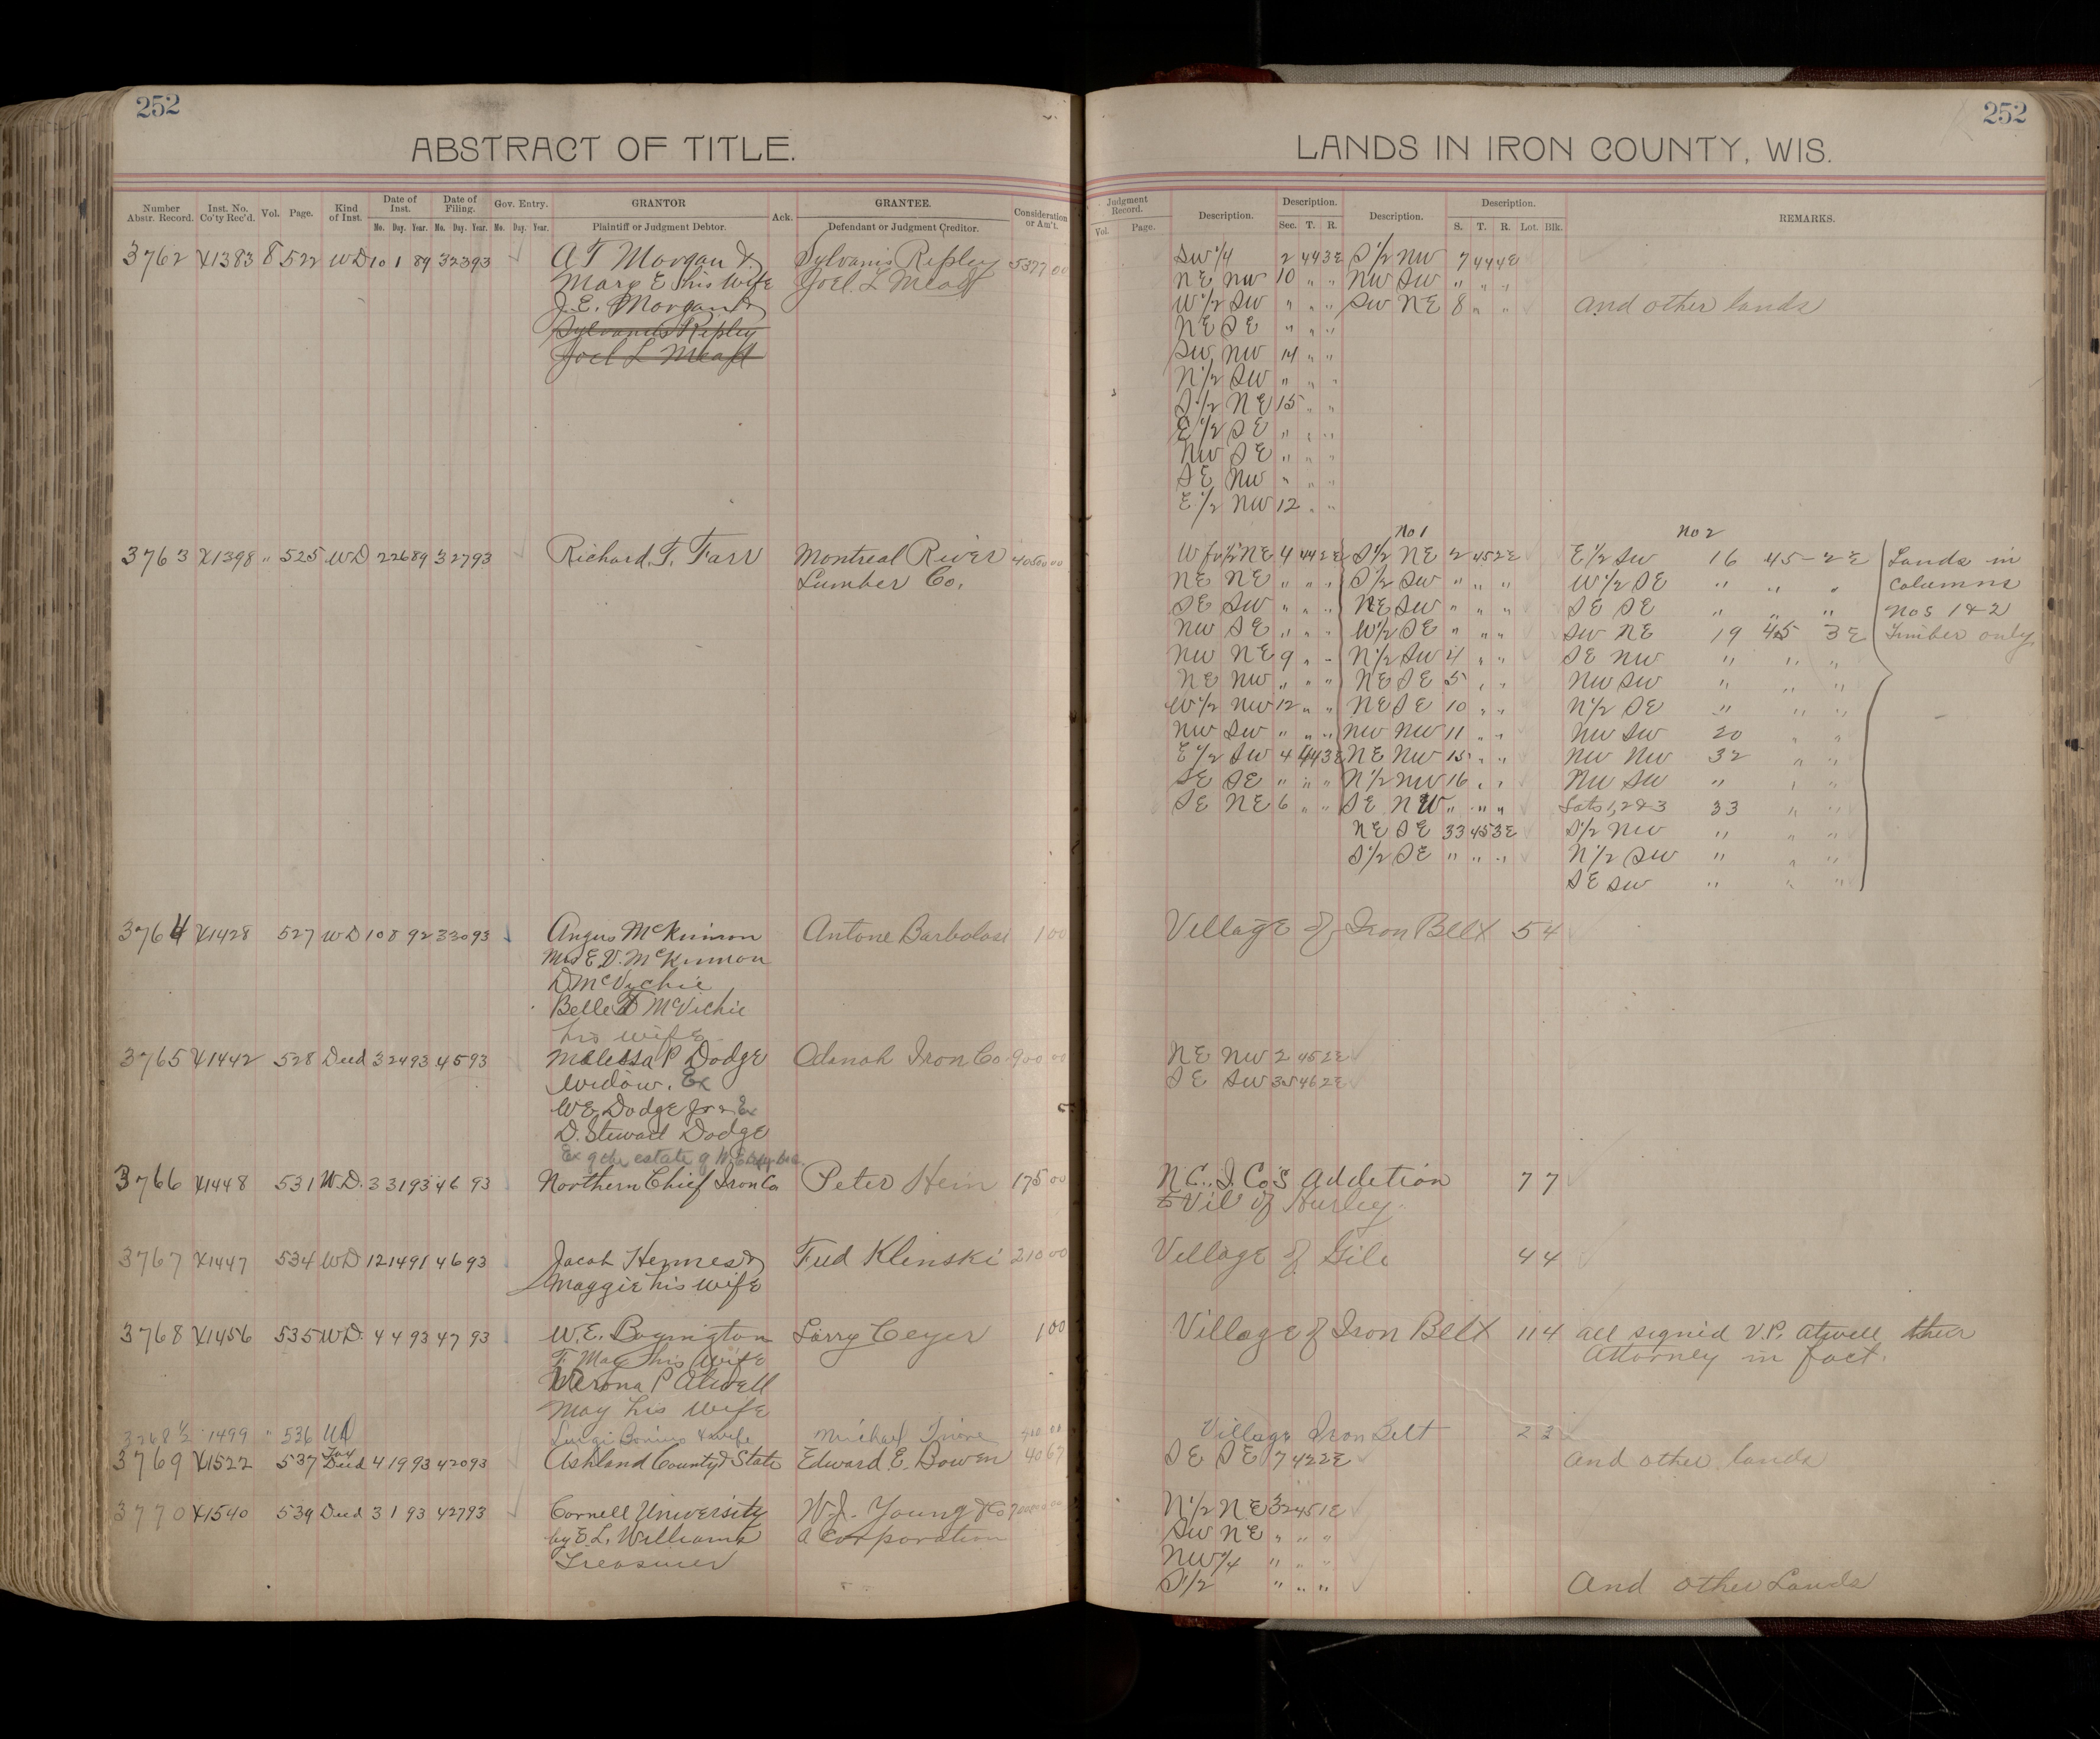 252
ABSTRACT OF TITLE.
Number Abstr. Record. Inst. No. Co'ty Rec'd. Vol. Page. Kind of Inst. Date of Inst. Mo. Day. Year. Date of Filing. Mo. Day. Year. Gov. Entry. Mo. Day. Year. GRANTOR Plaintiff or Judgment Debtor. Ack. GRANTEE. Defendant or Judgment Creditor. Consideration or Am't.
3762 X1383 8 522 WD 10 1 89 3 23 93 A T Morgan & Sylvanis Ripley 5377 00
Mary E his wife Joel L
J. E. Morgan &
Sylvanis Ripley
Joel L
3763 X1398 " 525 WD 2 26 89 3 27 93 Richard T. Farr Montreal River
Lumber Co.
3764 X1428 527 WD 10 8 92 3 30 93 Angus McKinnon Antone Barbolosi 1 00
Mrs E D. McKinnon
D McVichie
Belle McVichie
his wife
3765 X1442 528 Deed 3 24 93 4 5 93 Melessa P Dodge Odanah Iron Co 900 00
Widow. Ex
W E. Dodge Jr & Ex
D. Stewart Dodge
Ex of the estate of
3766 X1448 531 W.D. 3 31 93 4 6 93 Northern Chief Iron Co Peter Hein 175 00
3767 X1447 534 WD 12 14 91 4 6 93 Jacob Hermes & Fred Klinski 210 00
Maggie his wife
3768 X1456 535 WD. 4 4 93 4 7 93 W. E. Boyington Larry Ceyer 1 00
F. May his wife
Verona P Atwell
May his wife
3768 1/2 1499 " 536 WD Luigi Bonino & wife Michael 400 00
3769 X1522 537 Tax Deed 4 19 93 4 20 93 Ashland County & State Edward E. Bowen 40 67
3770 X1540 539 Deed 3 1 93 4 27 93 Cornell University W. J. Young & Co
by E. L. Williams a Corporation
Treasurer
252
LANDS IN IRON COUNTY, WIS.
Judgment Record. Vol. Page. Description. Description. Sec. T. R. Description. Description. S. T. R. Lot. Blk. REMARKS.
SW 1/4 2 44 3E S 1/2 NW 7 44 4E
NE NW 10 " " NW SW " " "
W 1/2 SW " " " SW NE 8 " " and other lands
NE SE " " "
SW NW 14 " "
N 1/2 SW " " "
S 1/2 NE 15 " "
E 1/2 SE " " "
NW SE " " "
SE NW " " "
E 1/2 NW 12 " "
No 1 No 2
NE 4 44 2E S 1/2 NE 2 45 2E E 1/2 SW 16 45 2E Lands in
NE NE " " " S 1/2 SW " " " W 1/2 SE " " " Columns
SE SW " " " NE SW " " " SE SE " " " Nos 1 & 2
NW SE " " " W 1/2 SE " " " SW NE 19 45 3E Timber only
NW NE 9 " " N 1/2 SW 4 " " SE NW " " "
NE NW " " " NE SE 5 " " NW SW " " "
W 1/2 NW 12 " " NE SE 10 " " N 1/2 SE " " "
NW SW " " " NW NW 11 " " NW SW 20 " "
E 1/2 SW 4 44 3E NE NW 15 " " NW NW 32 " "
SE SE " " " N 1/2 NW 16 " " NW SW " " "
SE NE 6 " " SE NW " " " Lots 1, 2 & 3 33 " "
NE SE 33 45 3E S 1/2 NW " " "
S 1/2 SE " " " N 1/2 SW " " "
SE SW " " "
Village of Iron Belt 5 4
NE NW 2 45 2E
SE SW 35 46 2E
N.C. I. Co's Addition 7 7
to Vil of Hurley.
Village of Gile 4 4
Village of Iron Belt 11 4 all signed V. P. Atwell their
Attorney in fact.
Village Iron Belt 2 3
SE SE 7 42 2E and other lands
N 1/2 NE 32 45 1E
SW NE " " "
NW 1/4 " " "
S 1/2 " " " And other Lands